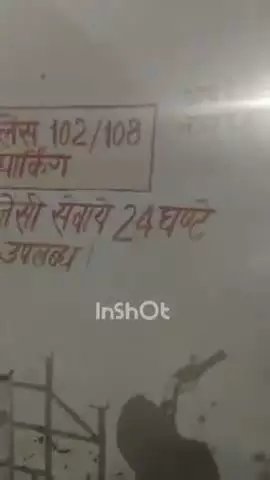 102/108
पार्किंग
सेवाये 24 घण्टे
उपलब्ध।
InShOt